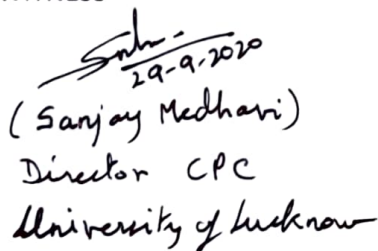 29-9-2020
(Sanjay Medhavi)
Director CPC
University of Lucknow